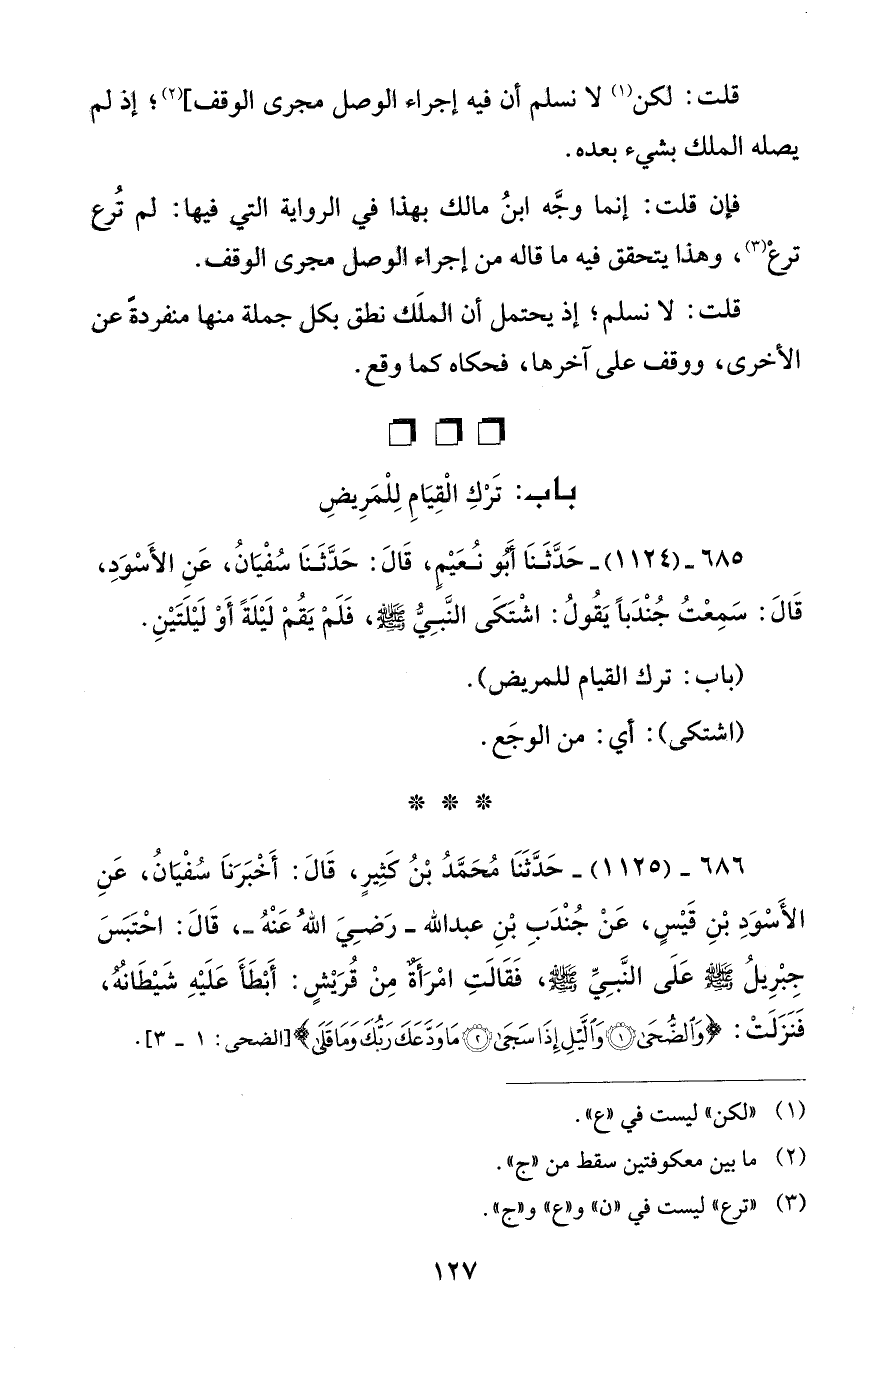 قلت: لكن(١) لا نسلم أن فيه إجراء الوصل مجرى الوقف](٢)؛ إذ لم
يصله الملك بشيء بعده.
فإن قلت: إنما وجَّه ابنُ مالك بهذا في الرواية التي فيها: لم تُرع
ترعْ(٣)، وهذا يتحقق فيه ما قاله من إجراء الوصل مجرى الوقف.
قلت: لا نسلم؛ إذ يحتمل أن الملَك نطق بكل جملة منها منفردةً عن
الأخرى، ووقف على آخرها، فحكاه كما وقع.
باب: تَرْكِ الْقِيَامِ لِلْمَرِيضِ
٦٨٥ ـ (١١٢٤) ـ حَدَّثَنَا أَبُو نُعَيْمٍ، قَالَ: حَدَّثَنَا سُفْيَانُ، عَنِ الأَسْوَدِ،
قَالَ: سَمِعْتُ جُنْدَباً يَقُولُ: اشْتَكَى النَّبِيُّ ﷺ، فَلَمْ يَقُمْ لَيْلَةً أَوْ لَيْلَتَيْنِ.
(باب: ترك القيام للمريض).
(اشتكى): أي: من الوجَع.
* * *
٦٨٦ ـ (١١٢٥) ـ حَدَّثَنَا مُحَمَّدُ بْنُ كَثِيرٍ، قَالَ: أَخْبَرَنَا سُفْيَانُ، عَنِ
الأَسْوَدِ بْنِ قَيْسٍ، عَنْ جُنْدَبِ بْنِ عبدالله ـ رَضِيَ اللهُ عَنْهُ ـ، قَالَ: احْتَبَسَ
جِبْرِيلُ ﷺ عَلَى النَّبِيِّ ﷺ، فَقَالَتِ امْرَأَةٌ مِنْ قُرَيْشٍ: أَبْطَأَ عَلَيْهِ شَيْطَانُهُ،
فَنَزَلَتْ: ﴿وَٱلضُّحَىٰ ۝١ وَٱلَّيْلِ إِذَا سَجَىٰ ۝٢ مَا وَدَّعَكَ رَبُّكَ وَمَا قَلَىٰ﴾ [الضحى: ١ ـ ٣].
(١) «لكن» ليست في «ع».
(٢) ما بين معكوفتين سقط من «ج».
(٣) «ترع» ليست في «ن» و«ع» و«ج».
١٢٧